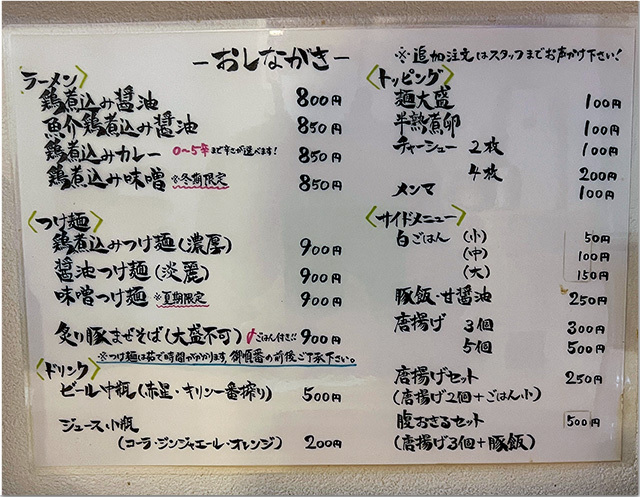 ーおしながきー
※追加注文はスタッフまでお声がけ下さい!
<ラーメン>
鶏煮込み醤油 800円
魚介鶏煮込み醤油 850円
鶏煮込みカレー 0〜5辛まで辛さが選べます! 850円
鶏煮込み味噌 ※冬期限定 850円
<つけ麺>
鶏煮込みつけ麺(濃厚) 900円
醤油つけ麺(淡麗) 900円
味噌つけ麺 ※夏期限定 900円
炙り豚まぜそば(大盛不可) ごはん付き!! 900円
※つけ麺は茹で時間がかかります。御順番の前後ご了承下さい。
<ドリンク>
ビール中瓶(赤星・キリン一番搾り) 500円
ジュース小瓶
(コーラ・ジンジャエール・オレンジ) 200円
<トッピング>
麺大盛 100円
半熟煮卵 100円
チャーシュー 2枚 100円
4枚 200円
メンマ 100円
<サイドメニュー>
白ごはん (小) 50円
(中) 100円
(大) 150円
豚飯・甘醤油 250円
唐揚げ 3個 300円
5個 500円
唐揚げセット 250円
(唐揚げ2個+ごはん小)
腹おさるセット 500円
(唐揚げ3個+豚飯)